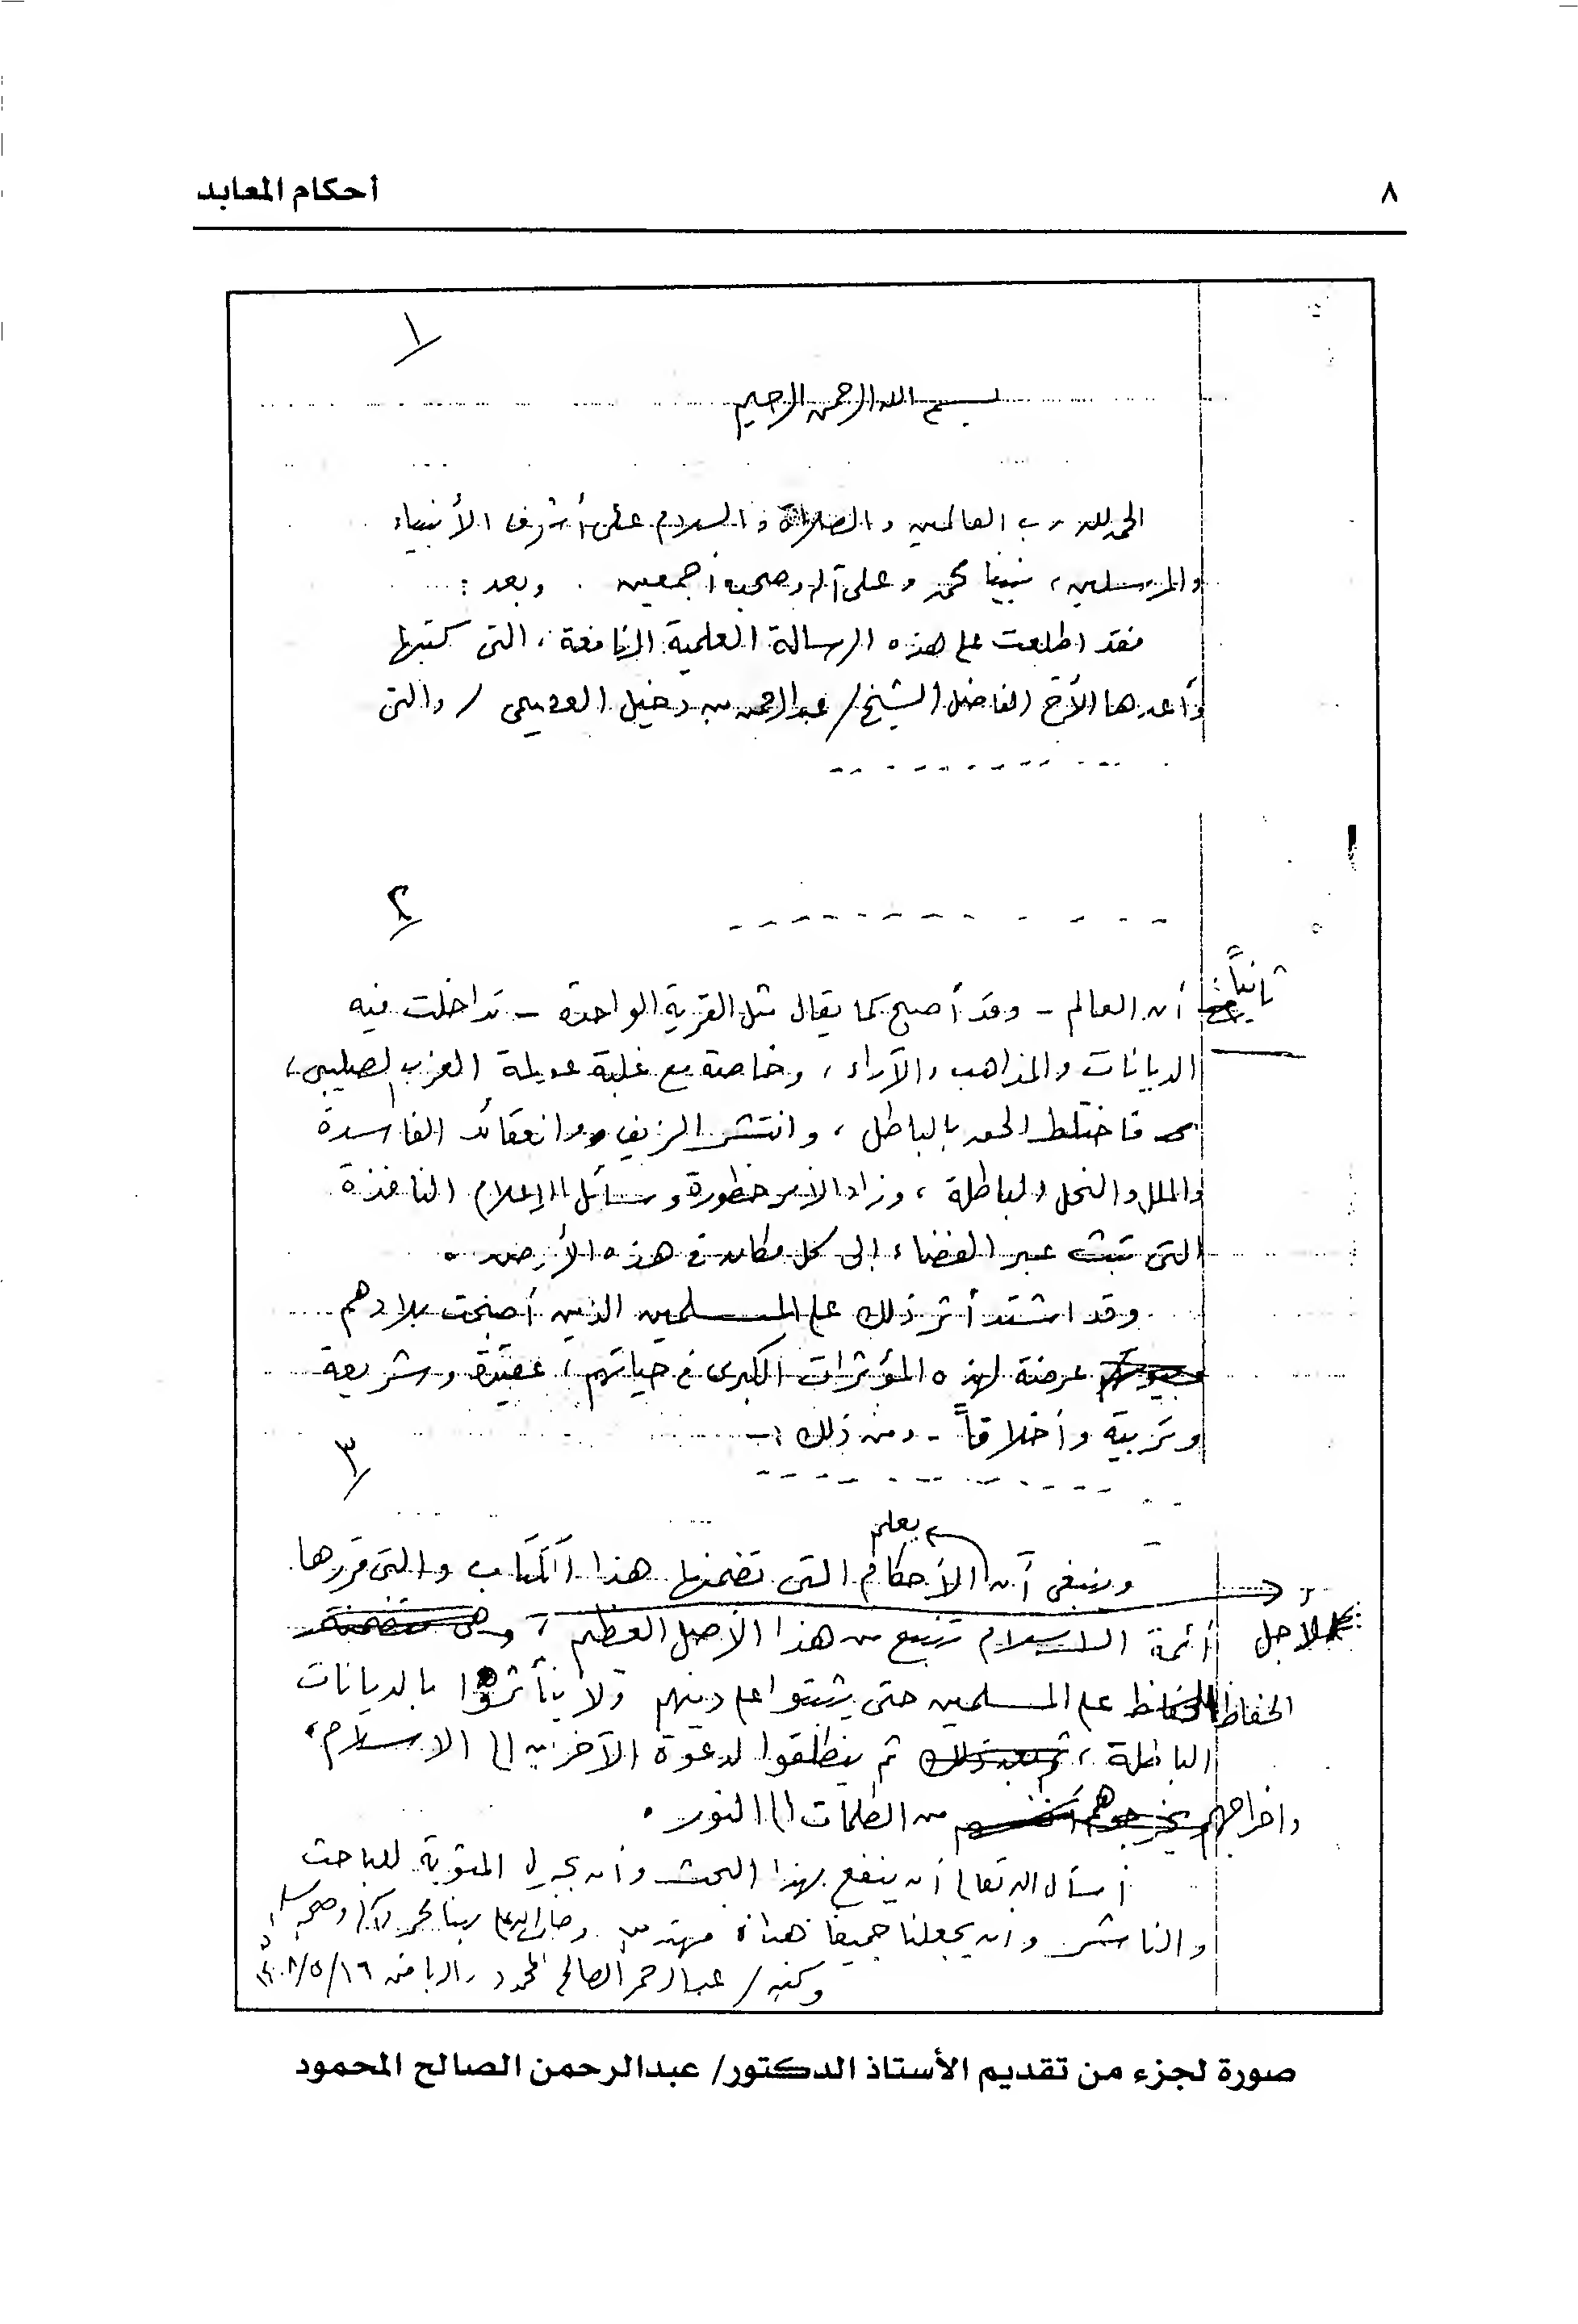 ٨
أحكام المعابد
١
بسم الله الرحمن الرحيم
الحمد لله رب العالمين والصلاة والسلام على أشرف الأنبياء
والمرسلين، نبينا محمد وعلى آله وصحبه أجمعين . وبعد :
فقد اطلعت على هذه الرسالة العلمية النافعة، التي كتبها
وأعدها الأخ الفاضل الشيخ/ عبدالرحمن بن دخيل العصيمي / والتي
٢
ثانياً: أن العالم - وقد أصبح كما يقال مثل القرية الواحدة - تداخلت فيه
الديانات والمذاهب والآراء، وخاصة مع غلبة عولمة الغرب الصليبي،
فاختلط الحق بالباطل، وانتشر الزيف والعقائد الفاسدة
والملل والنحل الباطلة، وزاد الأمر خطورة وسائل الإعلام النافذة
التي تبث عبر الفضاء إلى كل مكان في هذه الأرض .
وقد اشتد أثر ذلك على المسلمين الذين أصبحت بلادهم
عرضة لهذه المؤثرات الكبرى في حياتهم، عقيدة وشريعة
وتربية وأخلاقاً - ومن ذلك :-
٣
وينبغي أن يعلم أن الأحكام التي تضمنها هذا الكتاب والتي قررها
أئمة الإسلام تنبع من هذا الأصل العظيم، لأجل
الحفاظ على المسلمين حتى يثبتوا على دينهم ولا يتأثروا بالديانات
الباطلة، ثم ينطلقوا لدعوة الآخرين إلى الإسلام،
واخراجهم من الظلمات إلى النور .
أسأل الله تعالى أن ينفع بهذا البحث وأن يجزل المثوبة للباحث
والناشر وأن يجعلنا جميعاً هداة مهتدين وصلى الله على نبينا محمد وآله وصحبه وسلم
وكتبه / عبدالرحمن الصالح المحمود الرياض ١٦/٥/
صورة لجزء من تقديم الأستاذ الدكتور/ عبدالرحمن الصالح المحمود